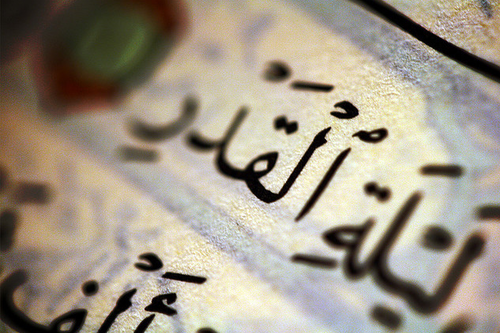 لَيْلَةِ الْقَدْرِ
أَلْفِ